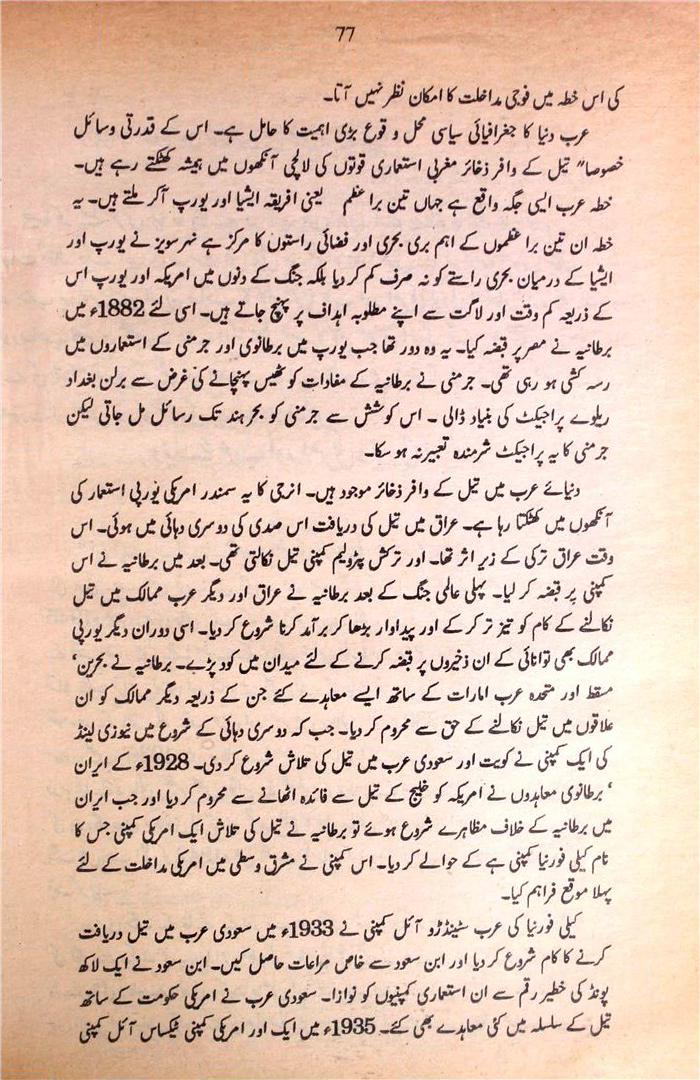 77
کی اس خطہ میں فوجی مداخلت کا امکان نظر نہیں آتا۔
عرب دنیا کا جغرافیائی سیاسی محل و قوع بڑی اہمیت کا حامل ہے۔ اس کے قدرتی وسائل
خصوصا" تیل کے وافر ذخائر مغربی استعماری قوتوں کی لالچی آنکھوں میں ہمیشہ کھٹکتے رہے ہیں۔
خطہ عرب ایسی جگہ واقع ہے جہاں تین براعظم یعنی افریقہ ایشیا اور یورپ آکر ملتے ہیں۔ یہ
خطہ ان تین براعظموں کے اہم بری بحری اور فضائی راستوں کا مرکز ہے نہر سویز نے یورپ اور
ایشیا کے درمیان بحری راستے کو نہ صرف کم کر دیا بلکہ جنگ کے دنوں میں امریکہ اور یورپ اس
کے ذریعہ کم وقت اور لاگت سے اپنے مطلوبہ اہداف پر پہنچ جاتے ہیں۔ اسی لئے 1882ء میں
برطانیہ نے مصر پر قبضہ کیا۔ یہ وہ دور تھا جب یورپ میں برطانوی اور جرمنی کے استعماروں میں
رسہ کشی ہو رہی تھی۔ جرمنی نے برطانیہ کے مفادات کو ٹھیس پہنچانے کی غرض سے برلن بغداد
ریلوے پراجیکٹ کی بنیاد ڈالی ۔ اس کوشش سے جرمنی کو بحر ہند تک رسائل مل جاتی لیکن
جرمنی کا یہ پراجیکٹ شرمندہ تعبیر نہ ہو سکا۔
دنیائے عرب میں تیل کے وافر ذخائر موجود ہیں۔ انرجی کا یہ سمندر امریکی یورپی استعمار کی
آنکھوں میں کھٹکتا رہا ہے۔ عراق میں تیل کی دریافت اس صدی کی دوسری دہائی میں ہوئی۔ اس
وقت عراق ترکی کے زیر اثر تھا۔ اور ترکش پٹرولیم کمپنی تیل نکالتی تھی۔ بعد میں برطانیہ نے اس
کمپنی پر قبضہ کر لیا۔ پہلی عالمی جنگ کے بعد برطانیہ نے عراق اور دیگر عرب ممالک میں تیل
نکالنے کے کام کو تیز تر کر کے اور پیداوار بڑھا کر برآمد کرنا شروع کر دیا۔ اسی دوران دیگر یورپی
ممالک بھی توانائی کے ان ذخیروں پر قبضہ کرنے کے لئے میدان میں کود پڑے۔ برطانیہ نے بحرین'
مسقط اور متحدہ عرب امارات کے ساتھ ایسے معاہدے کئے جن کے ذریعہ دیگر ممالک کو ان
علاقوں میں تیل نکالنے کے حق سے محروم کر دیا۔ جب کہ دوسری دہائی کے شروع میں نیوزی لینڈ
کی ایک کمپنی نے کویت اور سعودی عرب میں تیل کی تلاش شروع کر دی۔ 1928ء کے ایران
' برطانوی معاہدوں نے امریکہ کو خلیج کے تیل سے فائدہ اٹھانے سے محروم کر دیا اور جب ایران
میں برطانیہ کے خلاف مظاہرے شروع ہوئے تو برطانیہ نے تیل کی تلاش ایک امریکی کمپنی جس کا
نام کیلی فورنیا کمپنی ہے کے حوالے کر دیا۔ اس کمپنی نے مشرق وسطی میں امریکی مداخلت کے لئے
پہلا موقع فراہم کیا۔
کیلی فورنیا کی عرب سٹینڈرڈ آئل کمپنی نے 1933ء میں سعودی عرب میں تیل دریافت
کرنے کا کام شروع کر دیا اور ابن سعود سے خاص مراعات حاصل کیں۔ ابن سعود نے ایک لاکھ
پونڈ کی خطیر رقم سے ان استعماری کمپنیوں کو نوازا۔ سعودی عرب نے امریکی حکومت کے ساتھ
تیل کے سلسلہ میں کئی معاہدے بھی کئے۔ 1935ء میں ایک اور امریکی کمپنی ٹیکساس آئل کمپنی